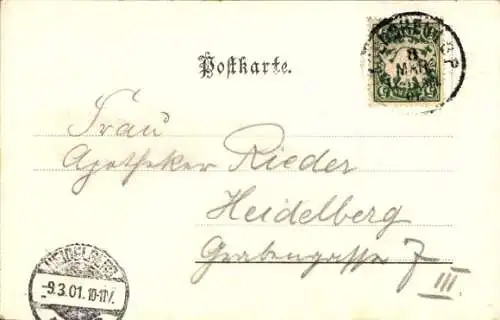 Postkarte.
8
MAR
Frau
Apotheker Rieder
Heidelberg
Grabengasse 7
III
HEIDELBERG
-9.3.01. 10-11V.